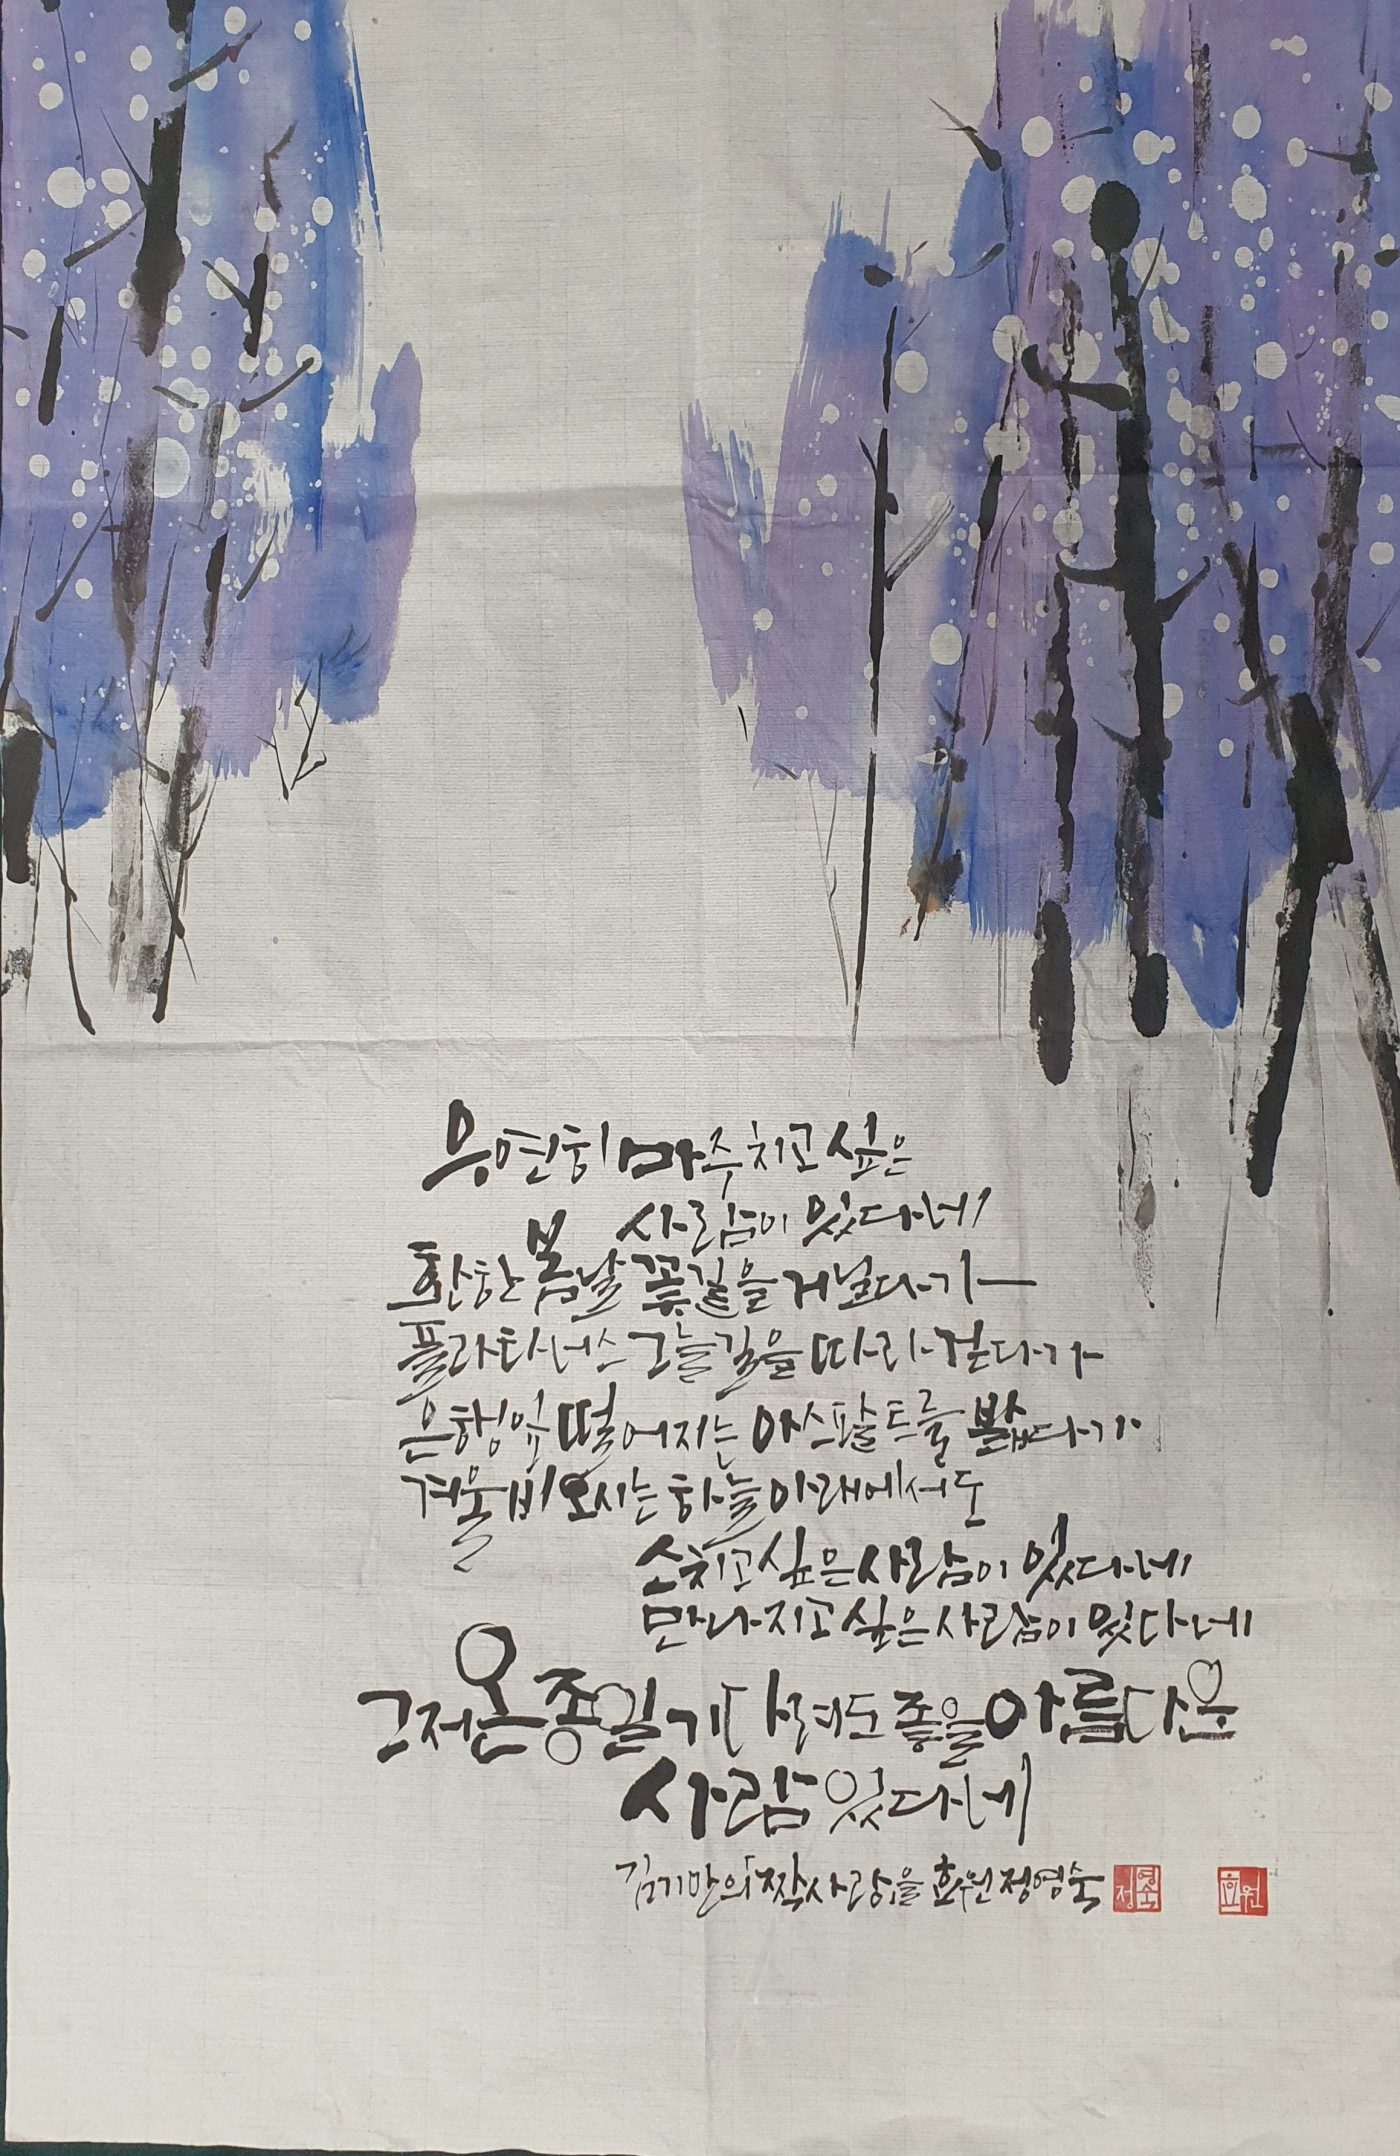 우연히 마주치고 싶은
사람이 있다네
환한 봄날 꽃길을 거닐다가
플라타너스 그늘길을 따라 걷다가
은행잎 떨어지는 아스팔트를 밟다가
겨울비 오시는 하늘 아래에서도
스치고 싶은 사람이 있다네
만나지고 싶은 사람이 있다네
그저 온종일 기다려도 좋을 아름다운
사람 있다네
김기만의 "짝사랑"을 효원 정영숙
정영숙
효원